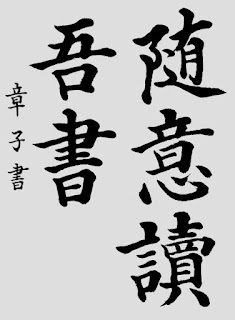 随意讀
吾書
章子書